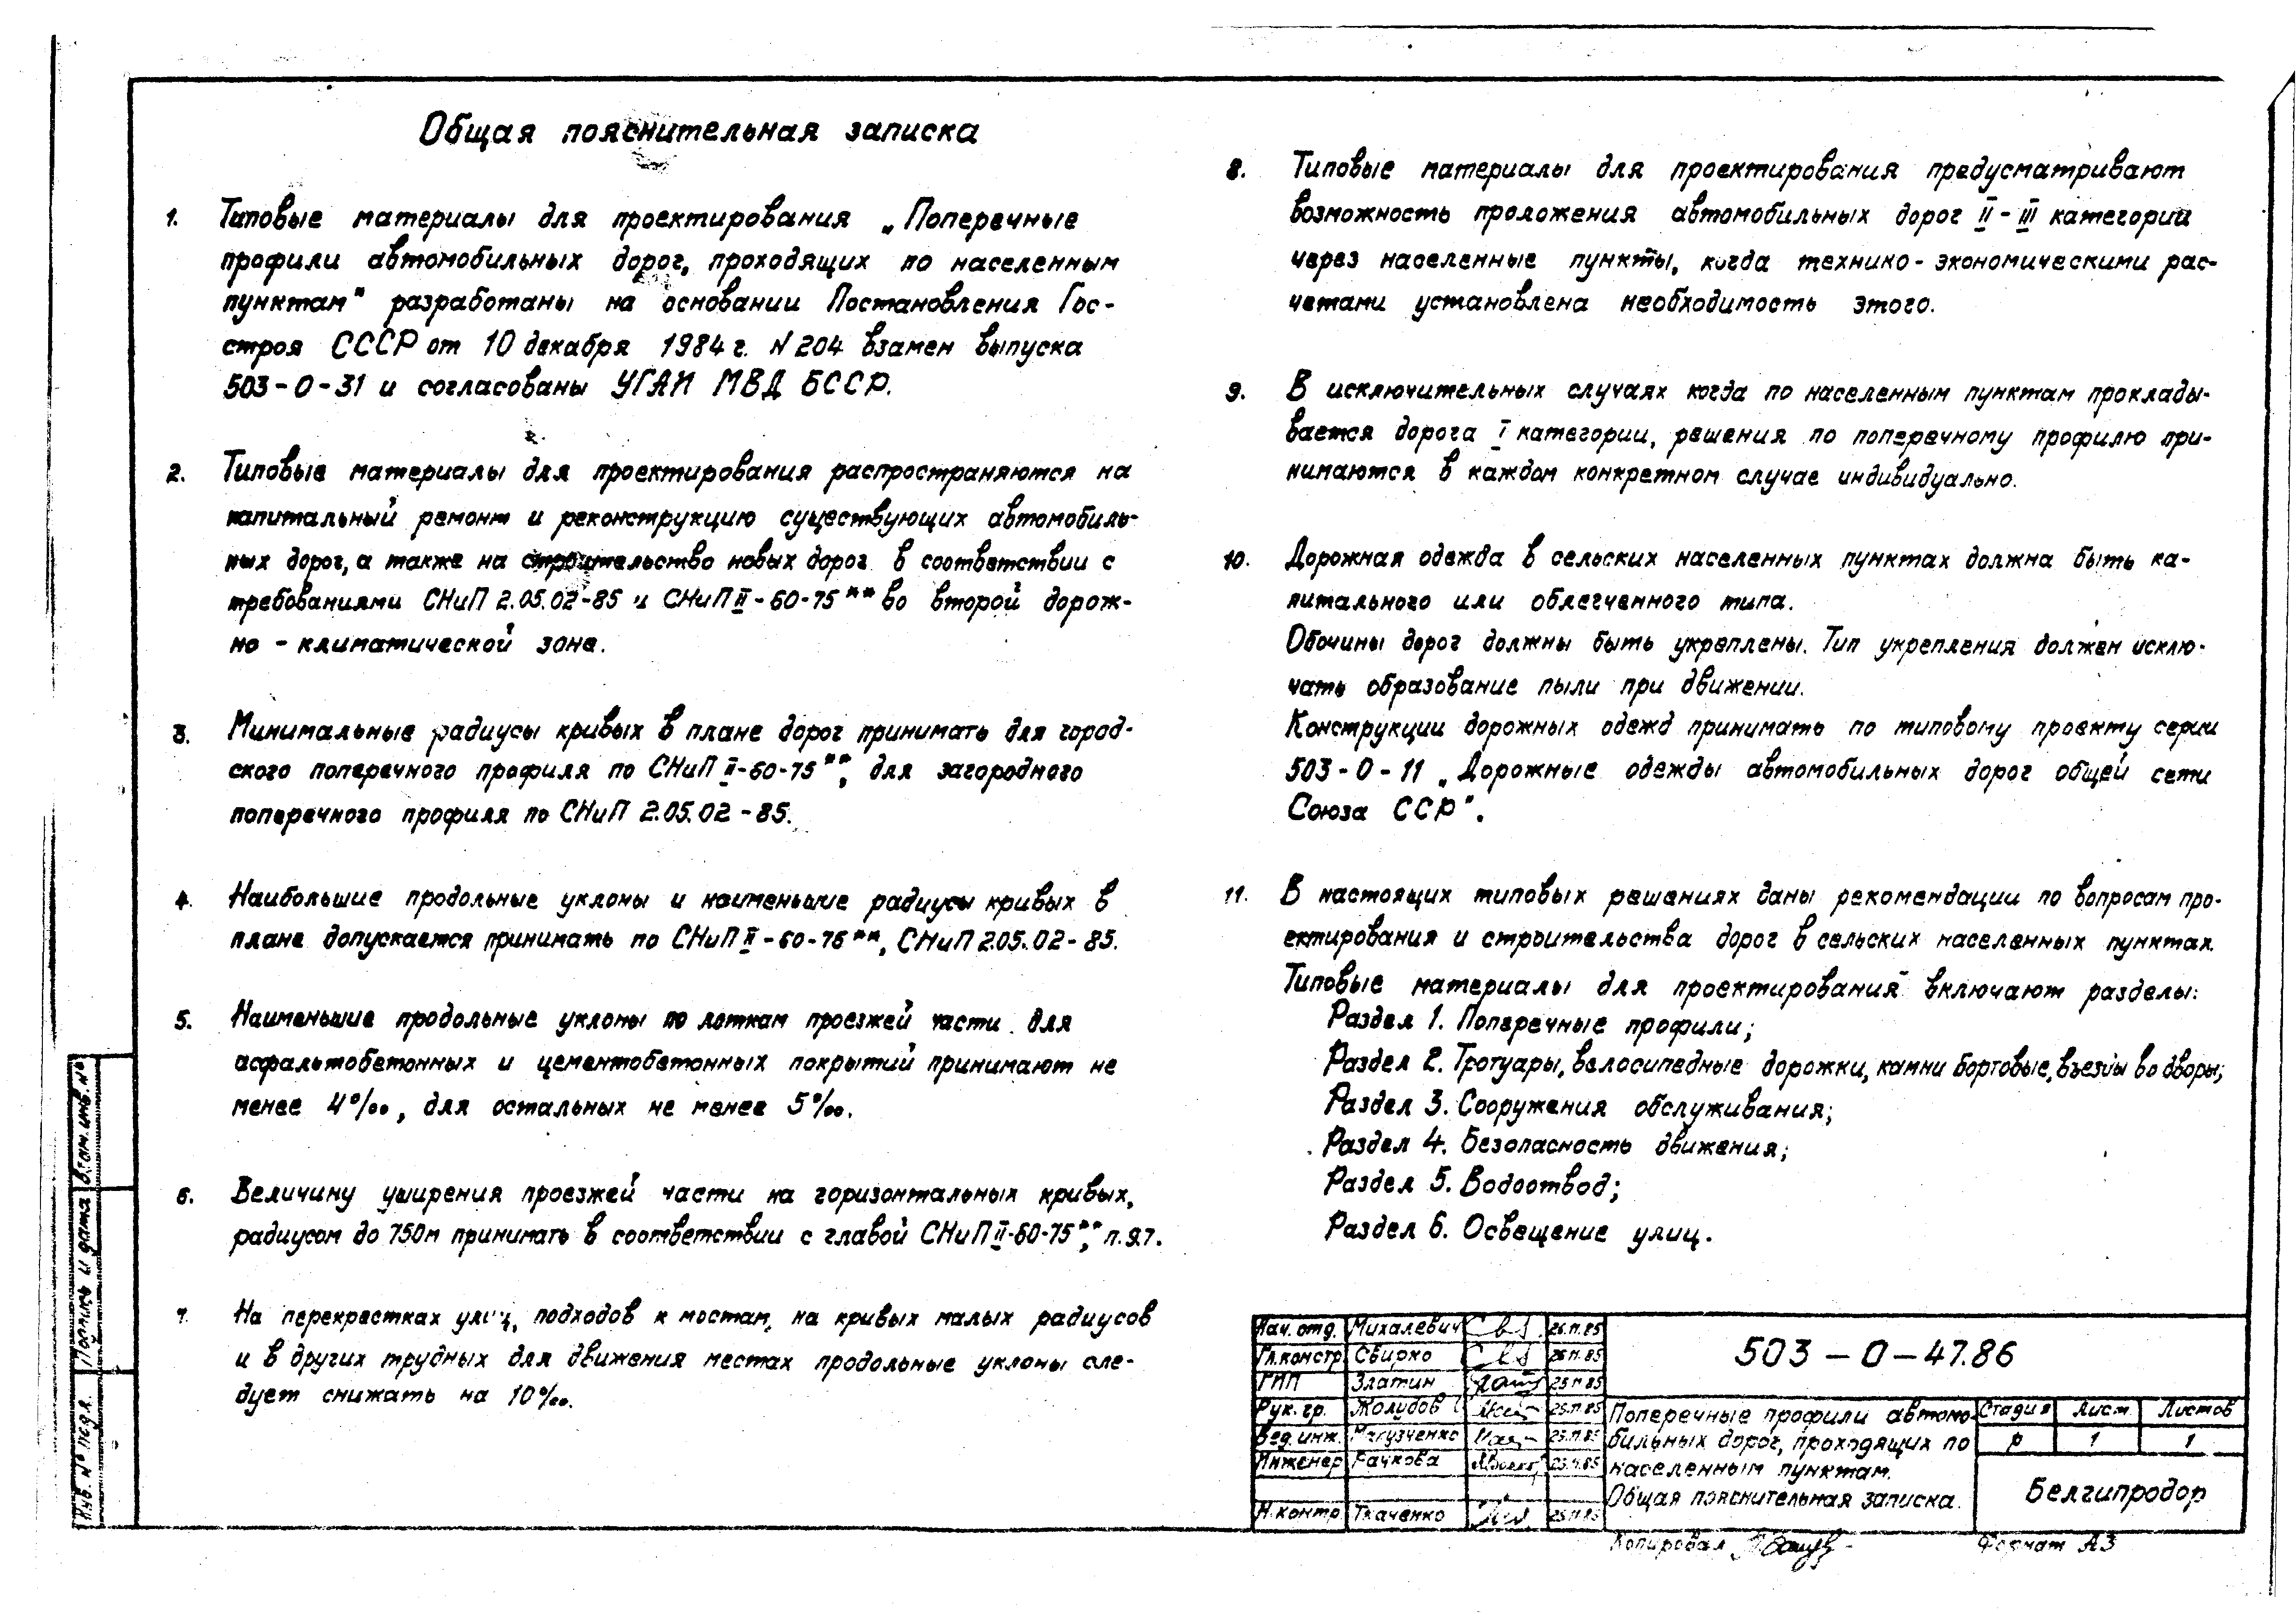 Общая пояснительная записка
1. Типовые материалы для проектирования „Поперечные
профили автомобильных дорог, проходящих по населенным
пунктам" разработаны на основании Постановления Гос-
строя СССР от 10 декабря 1984 г. N 204 взамен выпуска
503-0-31 и согласованы УГАИ МВД БССР.
2. Типовые материалы для проектирования распространяются на
капитальный ремонт и реконструкцию существующих автомобиль-
ных дорог, а также на строительство новых дорог в соответствии с
требованиями СНиП 2.05.02-85 и СНиП II-60-75** во второй дорож-
но - климатической зоне.
3. Минимальные радиусы кривых в плане дорог принимать для город-
ского поперечного профиля по СНиП II-60-75**, для загородного
поперечного профиля по СНиП 2.05.02-85.
4. Наибольшие продольные уклоны и наименьшие радиусы кривых в
плане допускается принимать по СНиП II-60-75**, СНиП 2.05.02-85.
5. Наименьшие продольные уклоны по лоткам проезжей части для
асфальтобетонных и цементобетонных покрытий принимают не
менее 4‰, для остальных не менее 5‰.
6. Величину уширения проезжей части на горизонтальных кривых,
радиусом до 750м принимать в соответствии с главой СНиП II-60-75**, п.9.7.
7. На перекрестках улиц, подходов к мостам, на кривых малых радиусов
и в других трудных для движения местах продольные уклоны сле-
дует снижать на 10‰.
8. Типовые материалы для проектирования предусматривают
возможность проложения автомобильных дорог II - III категории
через населенные пункты, когда технико-экономическими рас-
четами установлена необходимость этого.
9. В исключительных случаях когда по населенным пунктам проклады-
вается дорога I категории, решения по поперечному профилю при-
нимаются в каждом конкретном случае индивидуально.
10. Дорожная одежда в сельских населенных пунктах должна быть ка-
питального или облегченного типа.
Обочины дорог должны быть укреплены. Тип укрепления должен исклю-
чать образование пыли при движении.
Конструкции дорожных одежд принимать по типовому проекту серии
503-0-11 „Дорожные одежды автомобильных дорог общей сети
Союза ССР".
11. В настоящих типовых решениях даны рекомендации по вопросам про-
ектирования и строительства дорог в сельских населенных пунктах.
Типовые материалы для проектирования включают разделы:
Раздел 1. Поперечные профили;
Раздел 2. Тротуары, велосипедные дорожки, камни бортовые, въезды во дворы;
Раздел 3. Сооружения обслуживания;
Раздел 4. Безопасность движения;
Раздел 5. Водоотвод;
Раздел 6. Освещение улиц.
Инв. № подл. Подпись и дата Взам. инв. №
Нач. отд. Михалевич 26.11.85
Гл. констр. Сбирко 26.11.85
ГИП Златин 25.11.85
Рук. гр. Жолудов 25.11.85
Вед. инж. 25.11.85
Инженер Рачкова 25.11.85
Н. контр. Ткаченко 25.11.85
503-0-47.86
Поперечные профили автомо-
бильных дорог, проходящих по
населенным пунктам.
Общая пояснительная записка.
Стадия Лист Листов
Р 1 1
Белгипродор
Копировал
Формат А3